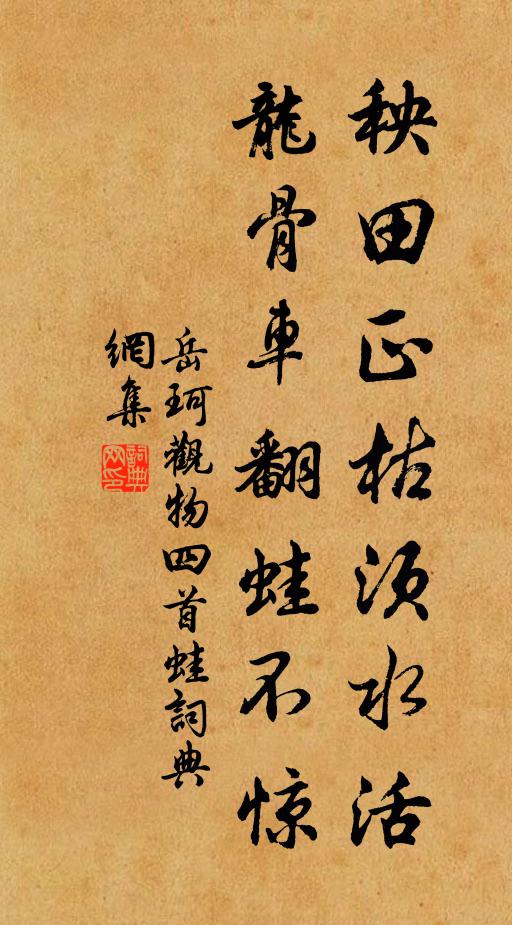 秧田正枯須水活
龍骨車翻蛙不惊
岳珂觀物四首蛙詞典
網集
詞典
网印